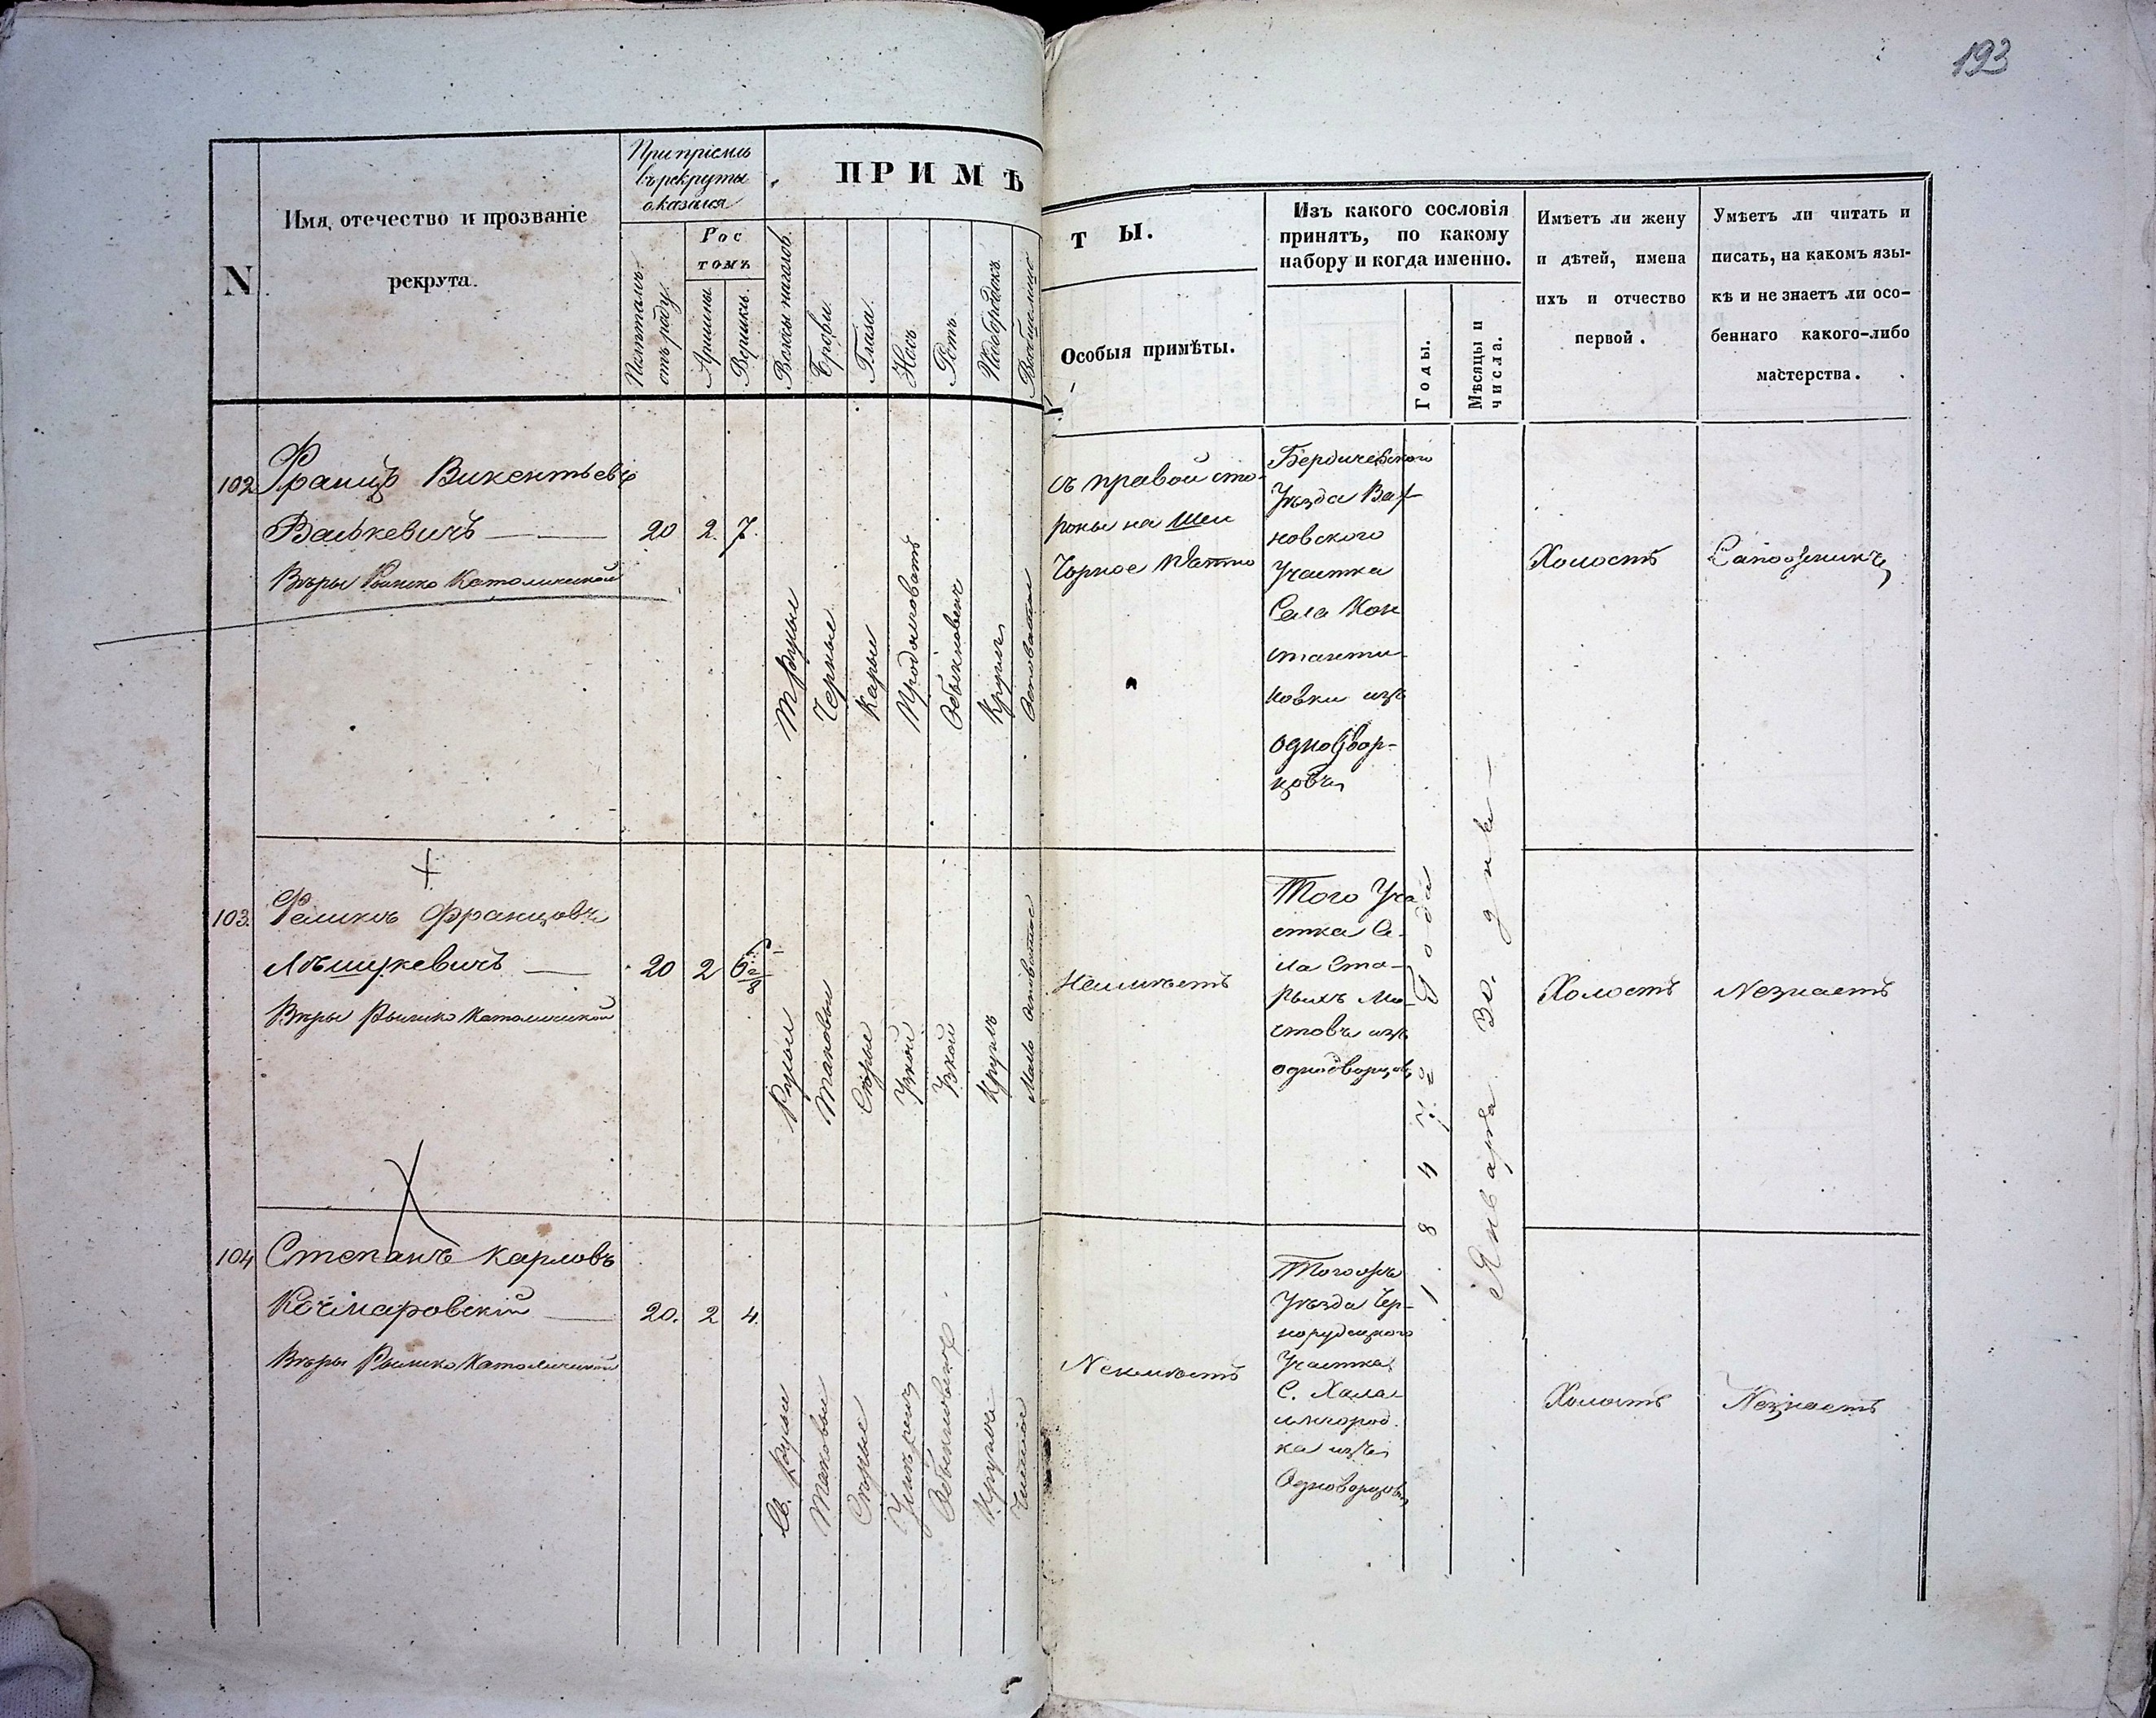 193
N
Имя, отечество и прозваніе
рекрута.
При пріемѣ
въ рекруты
оказался
Лѣтами
отъ роду.
Рос
томъ
Аршины.
Вершки.
ПРИМѢ
Волосы на голов.
Брови.
Глаза.
Носъ.
Ротъ.
Подбородокъ.
Вообще лицо
ТЫ.
Особыя примѣты.
Изъ какого сословія
принятъ, по какому
набору и когда именно.
Годы.
Мѣсяцы и
числа.
Имѣетъ ли жену
и дѣтей, имена
ихъ и отчество
первой.
Умѣетъ ли читать и
писать, на какомъ язы-
кѣ и не знаетъ ли осо-
беннаго какого-либо
мастерства.
102
Францъ Викентьевъ
Валькевичъ
Вѣры Римско Католической
20
2.
7.
Т Русые
Черные
Карыи
Продолговатъ
Обыкновен
Круглъ
с правой сто-
роны на шеи
Чорное пятно
Бердичевского
Уѣзда Вах-
новского
Участка
Села Кон
станти-
новки изъ
однодвор-
цовъ
Холостъ
Сапожникъ
103.
Феликсъ Францовъ
Вѣры Римско Католической
20
2
6 2/8
Русыи
Таковыи
Сѣрые
Узкой
Узкой
Круглъ
Мало
Неимѣетъ
Того Уча
стка Се-
ла Ста-
рыхъ Мо-
стовъ изъ
однодворцовъ
1847го Года
Января 30. дня
Холостъ
Незнаетъ
104
Степанъ Карловъ
Вѣры Римско Католической
20.
2
4.
Св. русыи
Таковые
Сѣрые
Умѣрен
Обыкновен
Кругла
Чистое
Неимѣетъ
Тогожъ
Уѣзда Чер-
норудского
Участка
С. Хала-
имгород
ка изъ
Однодворцовъ
Холостъ
Незнаетъ